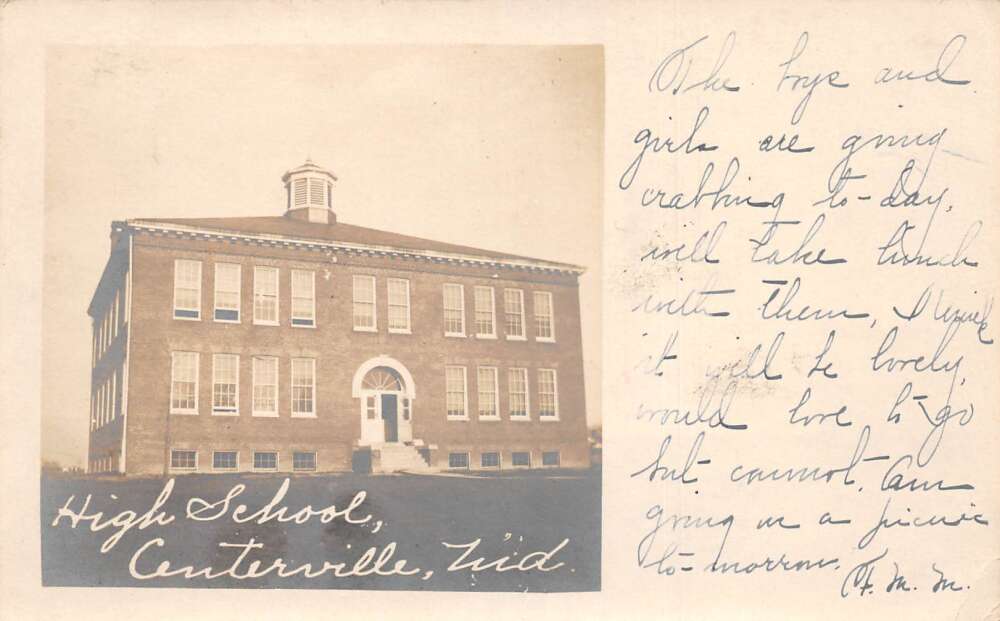 High School,
Centerville, Md.
The boys and
girls are going
crabbing to-day,
will take lunch
with them, I think
it will be lovely,
would love to go
but cannot. Am
going on a picnic
to-morrow. F. M. M.